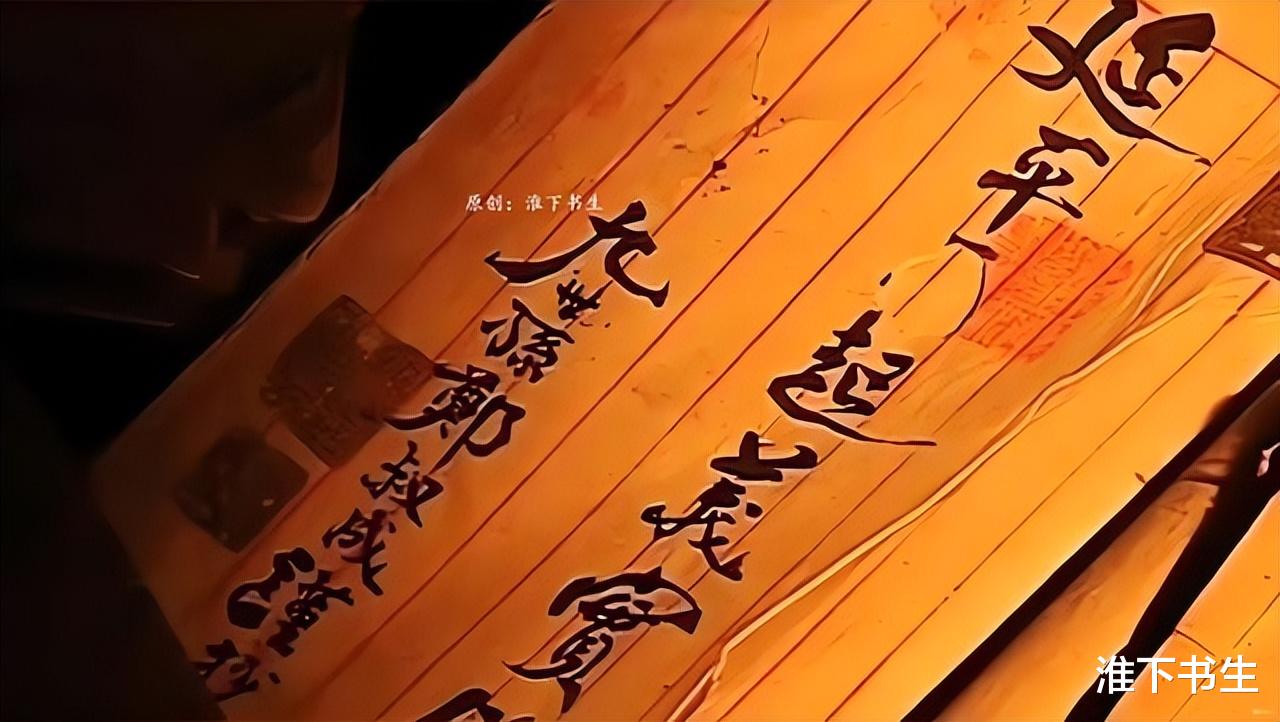 延平起義實
九世孫鄭叔成謹抄
原创：淮下书生
淮下书生